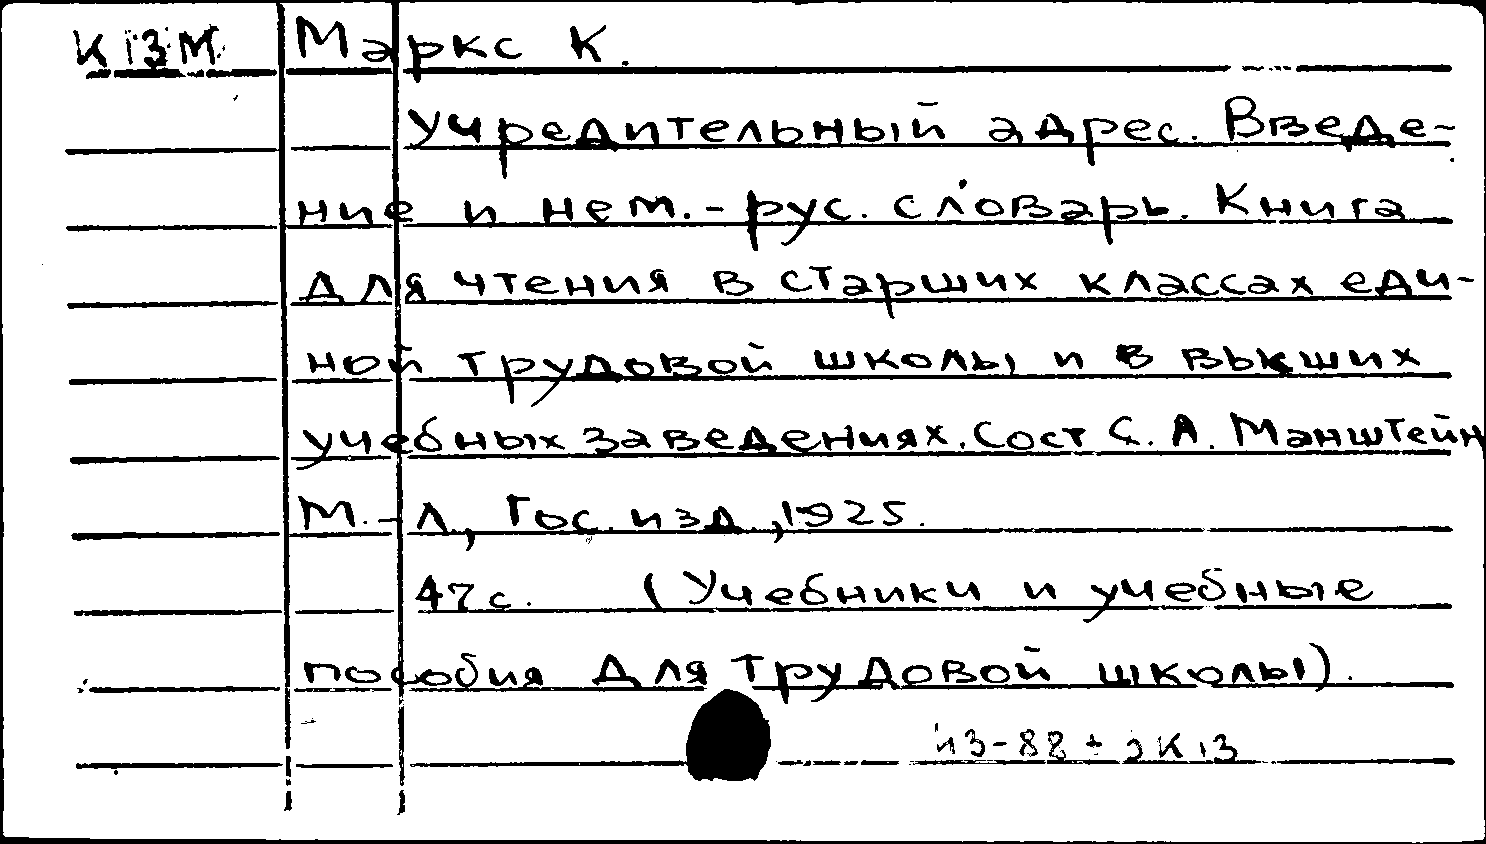 К13М Маркс К.
Учредительный адрес. Введе-
ние и нем.-рус. словарь. Книга
для чтения в старших классах еди-
ной трудовой школы и в высших
учебных заведениях. Сост С. А. Манштейн
М.-Л, Гос. изд., 1925.
47с. (Учебники и учебные
пособия для трудовой школы).
из-88 + 2К13